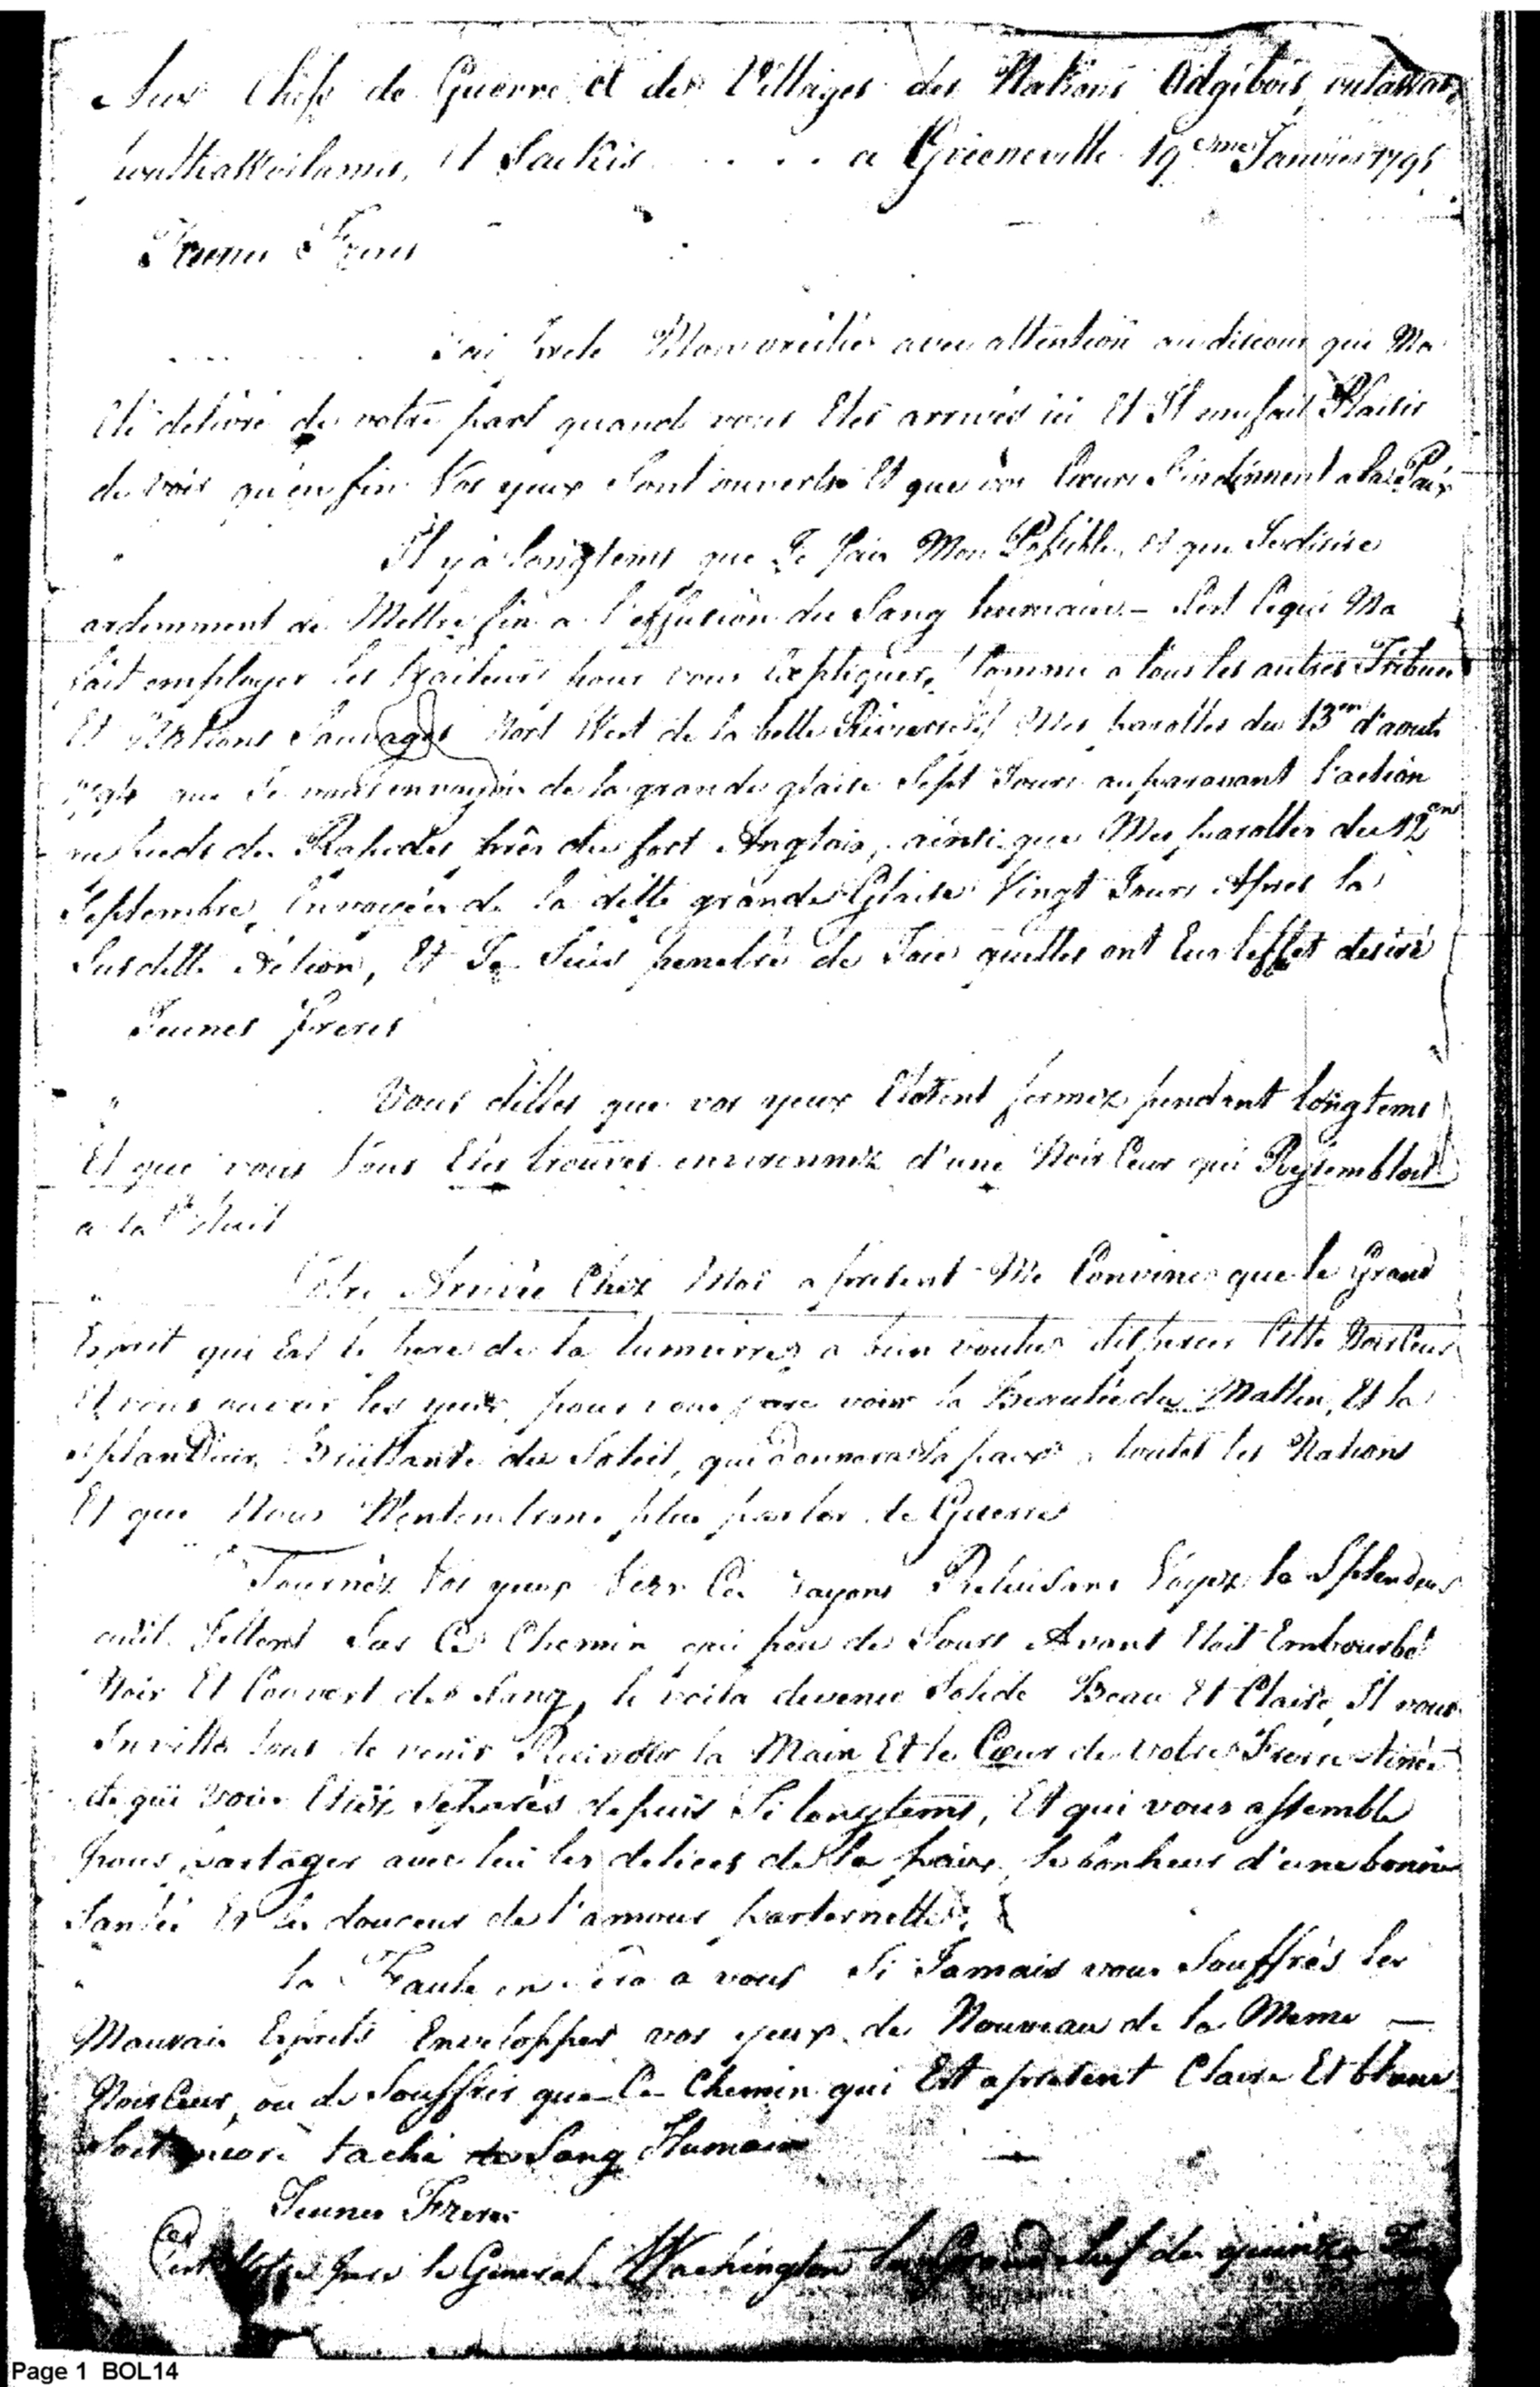 Aux Chefs de Guerre et des Villages des Nations Odgibois, outawas,
et Sackis . . . . a Grieneville 19eme Janvier 1795
Jeunes Freres
J'ai preté Mon oreilles avec attention au discour qui Ma
Eté délivré de votre part quand vous Etes arrivés ici Et Il me fait Plaisir
de voir qu'en fin Vos yeux Sont ouverts Et que vos Coeurs S'inclinnent a la Paix
" Il y a longtems que Je fais Mon Possible, et que Je desire
ardemment de Mettre fin a l'effusion du Sang humain - C'est Ce qui Ma
fait employer les traiteurs pour vous Expliquer, Comme a tous les autres Tribus
Et Nations Sauvages Nort West de la belle Riviere Mes parolles du 13me d'aout
1794 que Je vous envoyois de la grande glaise Sept Jours auparavant l'action
au pieds des Rapides près du fort Anglais, ainsi que Mes parolles du 12em
Septembre, Envoyées de la ditte grande Glaise Vingt Jours Apres la
Susditte Action, Et Je Suis penetré de Joie quelles ont Eu l'effet desiré
Jeunes freres
" Vous dittes que vos yeux Etoient fermez pendant longtems
Et que vous Vous Etes trouvés environnez d'une Noirceur qui Ressembloit
a la Nuit
" Votre Arrivée Chez Moi a present Me Convinc que le Grand
Esprit qui Est le pere de la lumierre a bien voulu disperser Cette Noirceur
Et vous ouvrir les yeux, pour vous faire voir la Beautée du Mattin, Et la
splandeur Brillante du Soleil, qui donnera la paix a toutes les Nations
Et que Nous N'entendrons plus parler de Guerre
" Tournéz Vos yeux Vers Ces rayons Reluisans Voyez la Splendeur
quil Jettent Sur Ce Chemin qui peu de Jours Avant Etoit Embourbé
Noir Et Couvert de Sang, le voila devenu Solide Beau Et Claire, Il vous
Invitte tous de venir la Main Et le Coeur de votre Frere Ainée
de qui vous Etiéz Separés depuis Si longtems, Et qui vous assemble
pour partager avec lui les delices de la paix, le bonheur d'une bonne
Santée Et les douceur de l'amour
" la Faute en Sera a vous Si Jamais vous Souffrés les
Mauvais Esprits Envelopper vos yeux de Nouveau de la Meme —
Noirceur, ou de Souffrir que Ce Chemin qui Est apresent Claire Et blanc
Soit encore taché de Sang Humain
Jeunes Freres
C'est Votre pere le General Wachington le Grand chef des quinze
Page 1 BOL14